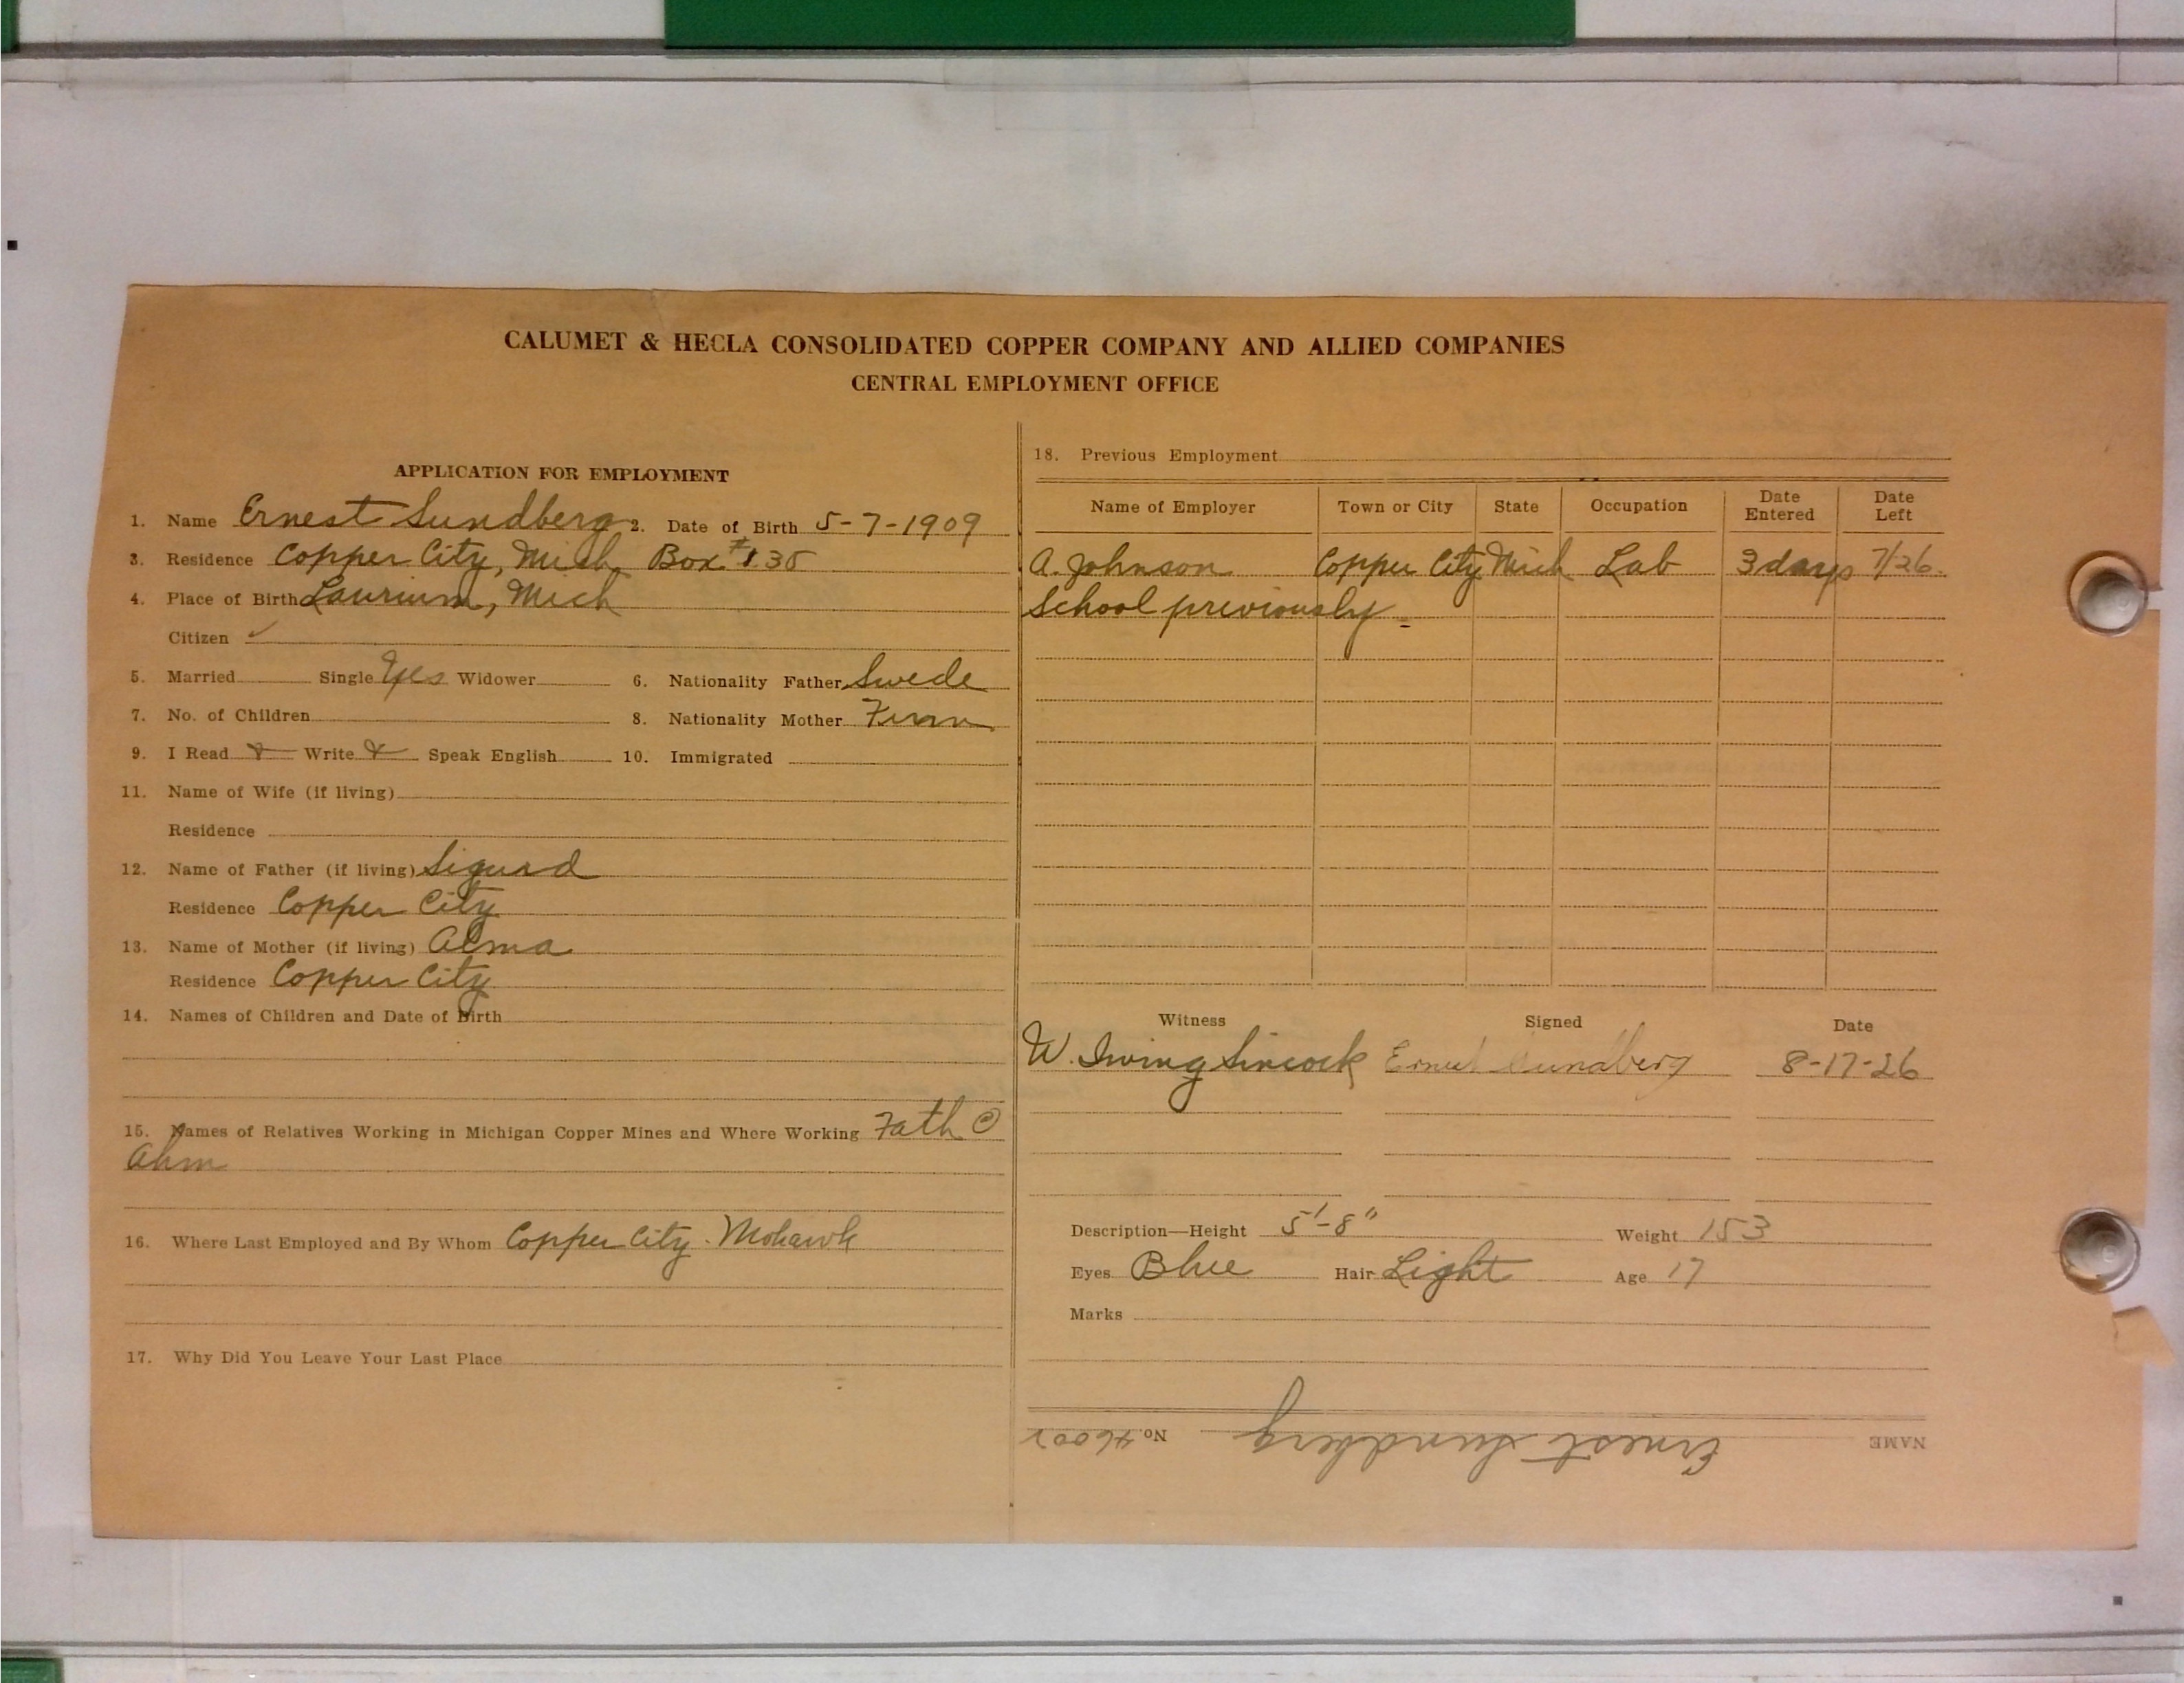 CALUMET & HECLA CONSOLIDATED COPPER COMPANY AND ALLIED COMPANIES
CENTRAL EMPLOYMENT OFFICE
APPLICATION FOR EMPLOYMENT
1. Name Ernest Sundberg 2. Date of Birth 5-7-1909
3. Residence Copper City, Mich, Box #135
4. Place of Birth Laurium, Mich
Citizen ✓
5. Married Single Yes Widower 6. Nationality Father Swede
7. No. of Children 8. Nationality Mother Finn
9. I Read Write Speak English 10. Immigrated
11. Name of Wife (if living)
Residence
12. Name of Father (if living) Sigurd
Residence Copper City
13. Name of Mother (if living) Alma
Residence Copper City
14. Names of Children and Date of Birth
15. Names of Relatives Working in Michigan Copper Mines and Where Working Fath @
Ahm
16. Where Last Employed and By Whom Copper City. Mohawk
17. Why Did You Leave Your Last Place
18. Previous Employment
Name of Employer Town or City State Occupation Date Entered Date Left
A. Johnson Copper City Mich Lab 3 days 7/26
School previously
Witness Signed Date
W. Irving Sincock Ernest Sundberg 8-17-26
Description—Height 5'-8" Weight 153
Eyes Blue Hair Light Age 17
Marks
NAME Ernest Sundberg No. 46002